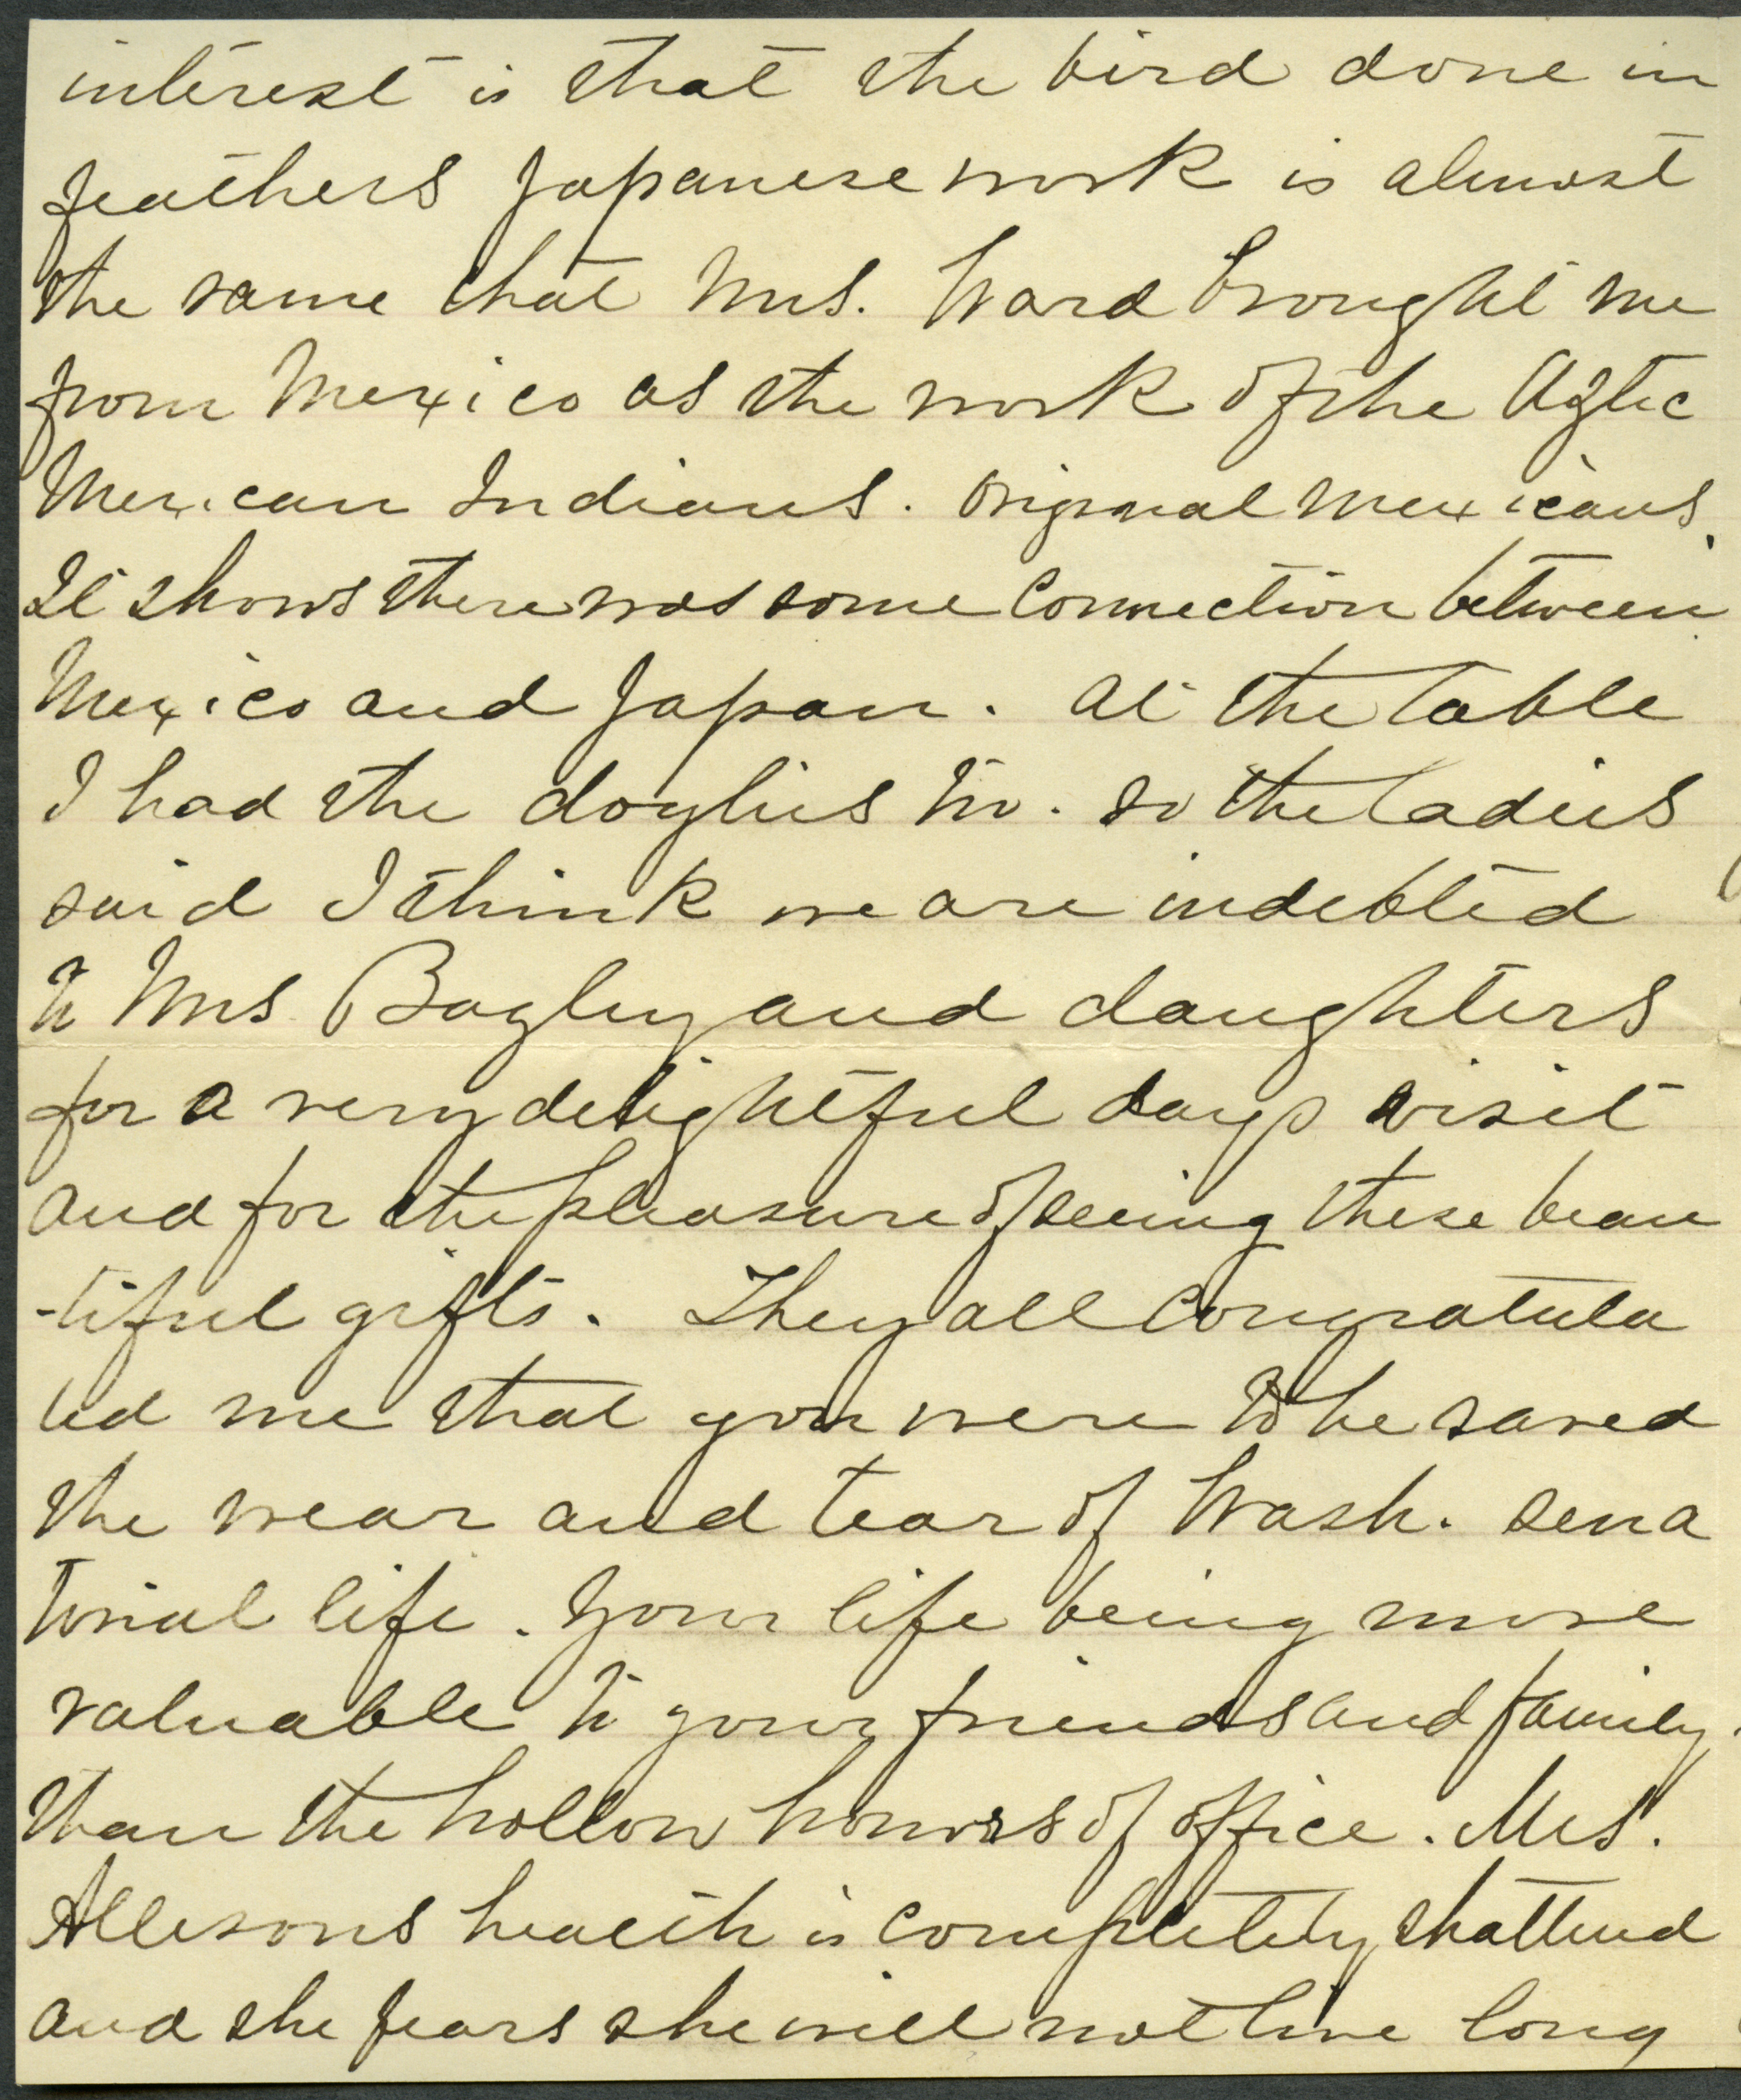 interest is that the bird done in
feathers Japanese work is almost
the same that Mrs. Ward brought me
from Mexico as the work of the Aztec
Mexican Indians. Original Mexicans.
It shows there was some connection between
Mexico and Japan. At the table
I had the doylies too. so the ladies
said I think we are indebted
to Mrs Bagley and daughters
for a very delightful days visit
and for the pleasure of seeing these beau
-tiful gifts. They all congratula
ted me that you were to be saved
the wear and tear of Wash. sena
torial life. Your life being more
valuable to your friends and family.
than the hollow honors of office. Mrs.
Allisons health is completely shattered
and she fears she will not live long